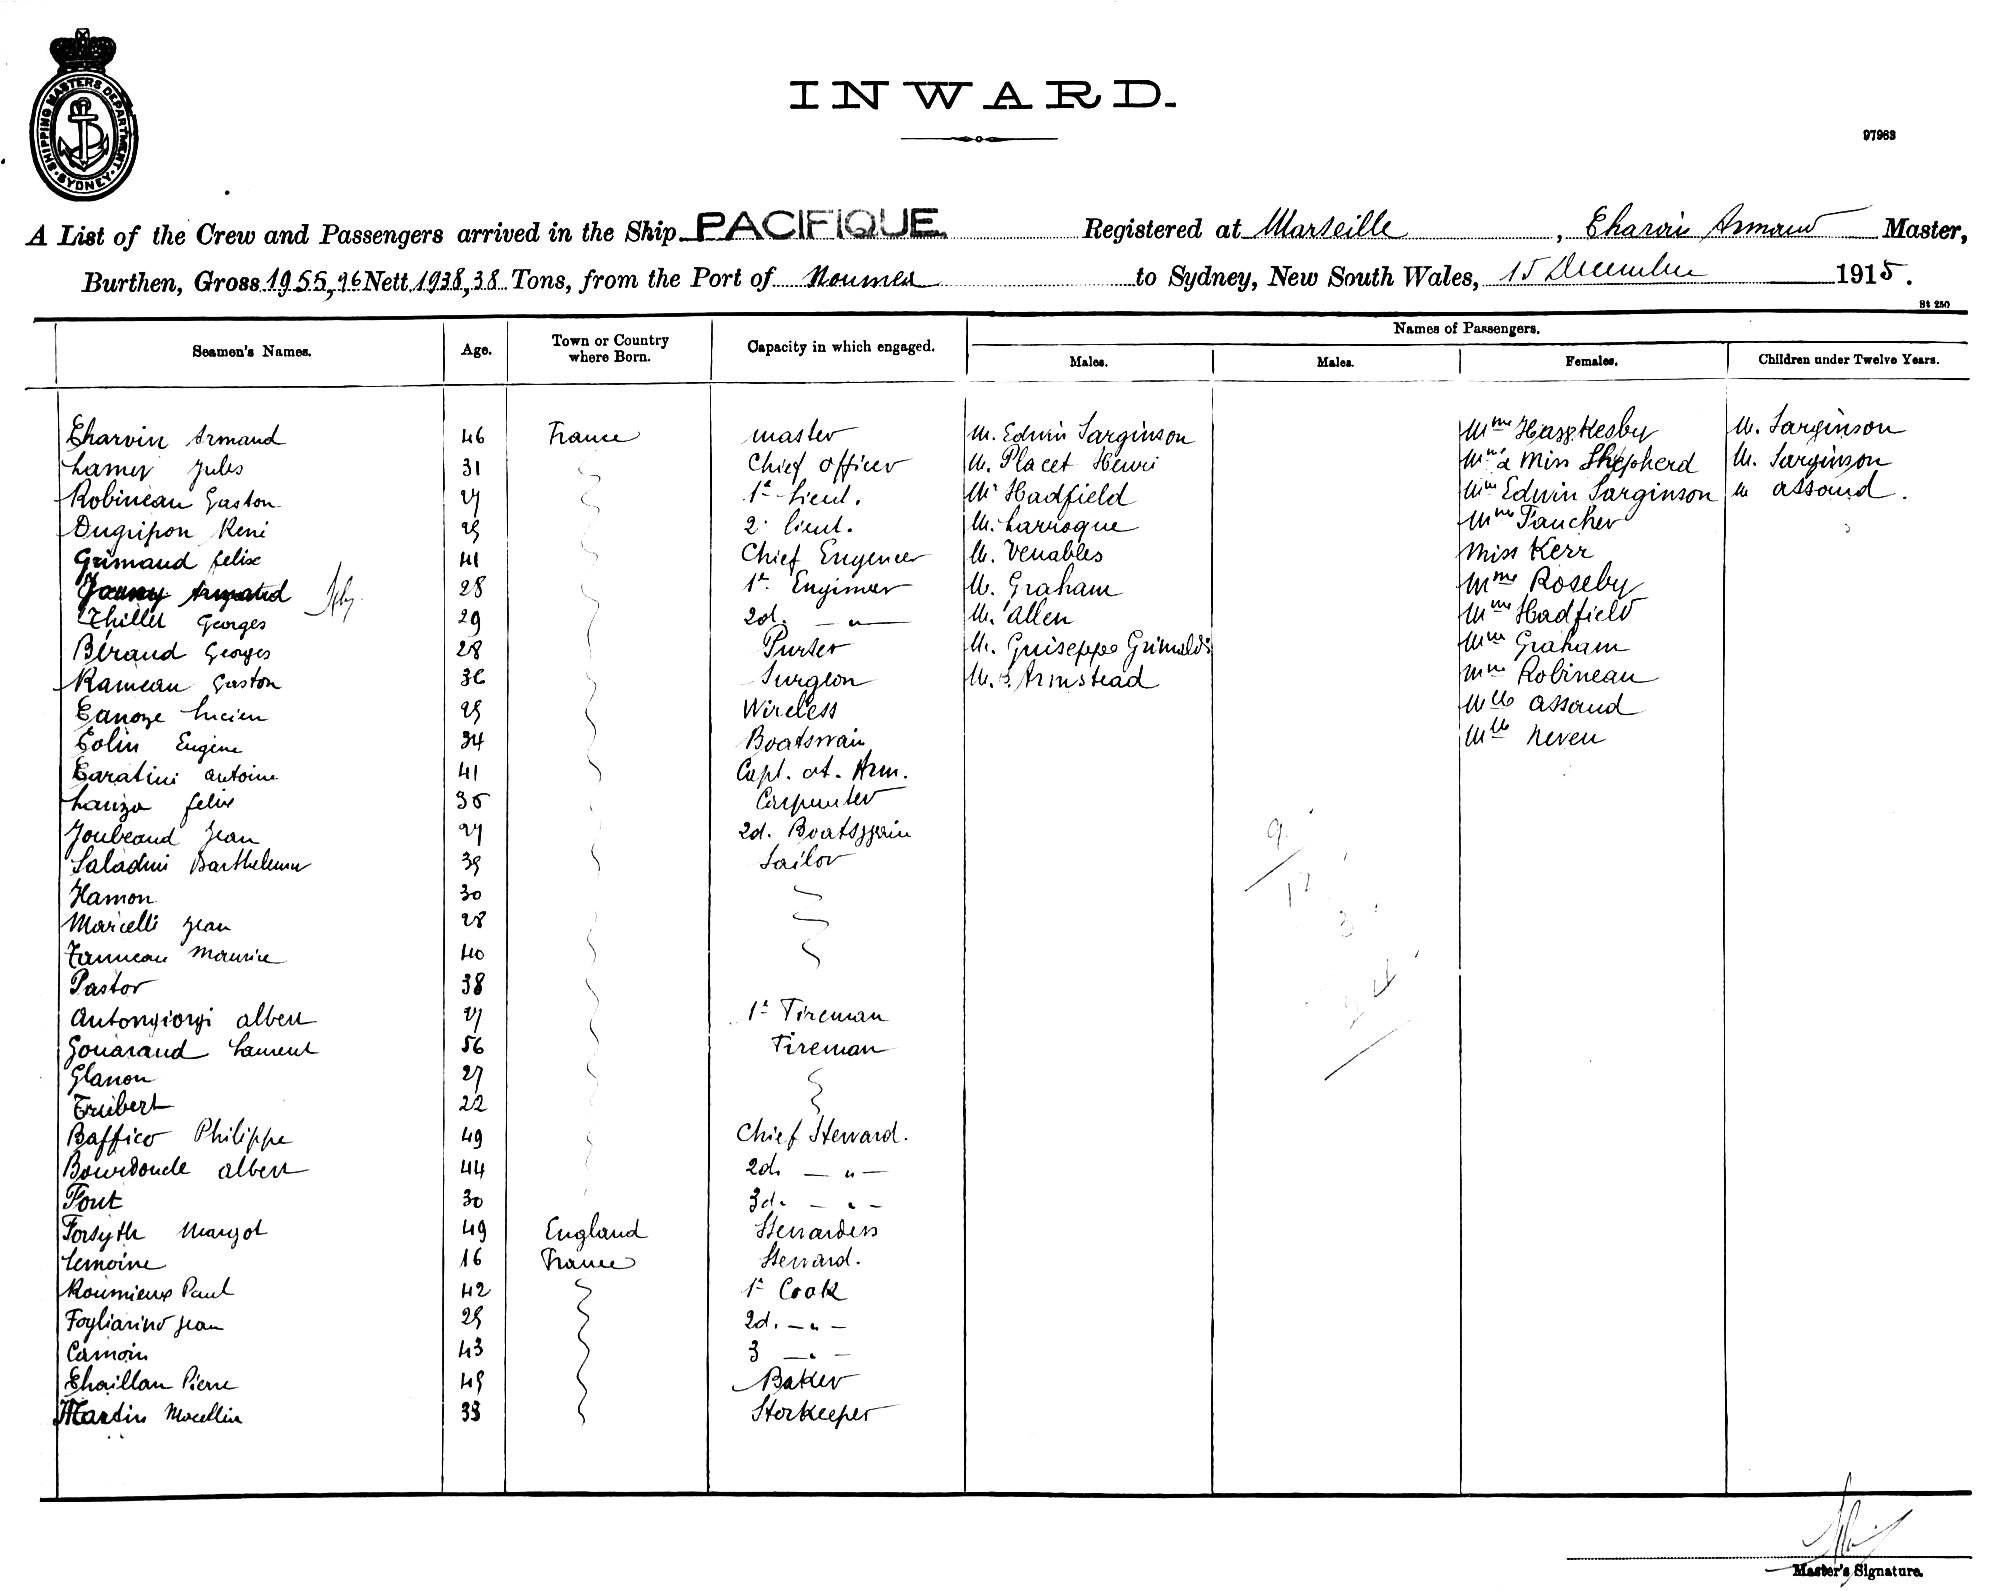 SHIPPING MASTERS DEPARTMENT
SYDNEY
INWARD.
97963
A List of the Crew and Passengers arrived in the Ship PACIFIQUE Registered at Marseille, Charvin Armand Master,
Burthen, Gross 1955,96 Nett 1938,38 Tons, from the Port of Noumea to Sydney, New South Wales, 15 December 1915.
St 250
Seamen's Names. Age. Town or Country where Born. Capacity in which engaged. Names of Passengers.
Males. Males. Females. Children under Twelve Years.
Charvin Armand 46 France master M. Edwin Sarginson Mme Haszkesby M. Sarginson
Lamey Jules 31 Chief officer M. Placet Henri Mme & Miss Shepherd M. Sarginson
Robineau Gaston 27 1st Lieut. Mr Hadfield Mme Edwin Sarginson M assaud.
Dugripon René 29 2d lieut. M. Larroque Mme Faucher
Grimaud felix 41 Chief Engeneer M. Venables Miss Kerr
28 1st Engineer M. Graham Mme Roseby
Thillet Georges 29 2d. — " — M. Allen Mme Hadfield
Béraud Georges 28 Purser M. Guiseppe Grimaldi Mme Graham
Rameau Gaston 36 Surgeon M. Armstead Mme Robineau
Canoze Lucien 29 Wireless Mlle assaud
Colin Eugène 34 Boatswain Mlle Neveu
Caratini antoine 41 Capt. at. Arm.
Lanza felix 35 Carpenter
Joubeaud Jean 27 2d. Boatswain
Saladini Barthelemy 39 Sailor
Hamon 30
Marcelli Jean 28
Tanneau Maurice 40
Pastor 38
Antongiorgi albert 27 1st Fireman
Gouaraud Laurent 56 Fireman
Glanon 27
Trubert 22
Baffico Philippe 49 Chief Steward.
Bourdoncle albert 44 2d. — " —
Font 30 3d. — " —
Forsyth Margot 49 England Stewardess
Lemoine 16 France Steward.
Roumieux Paul 42 1st Cook
Fogliarino Jean 29 2d. — " —
Camoin 43 3 — " —
Chaillan Pierre 49 Baker
Martin Marcellin 33 Storkeeper
9
12
3
24
Master's Signature.